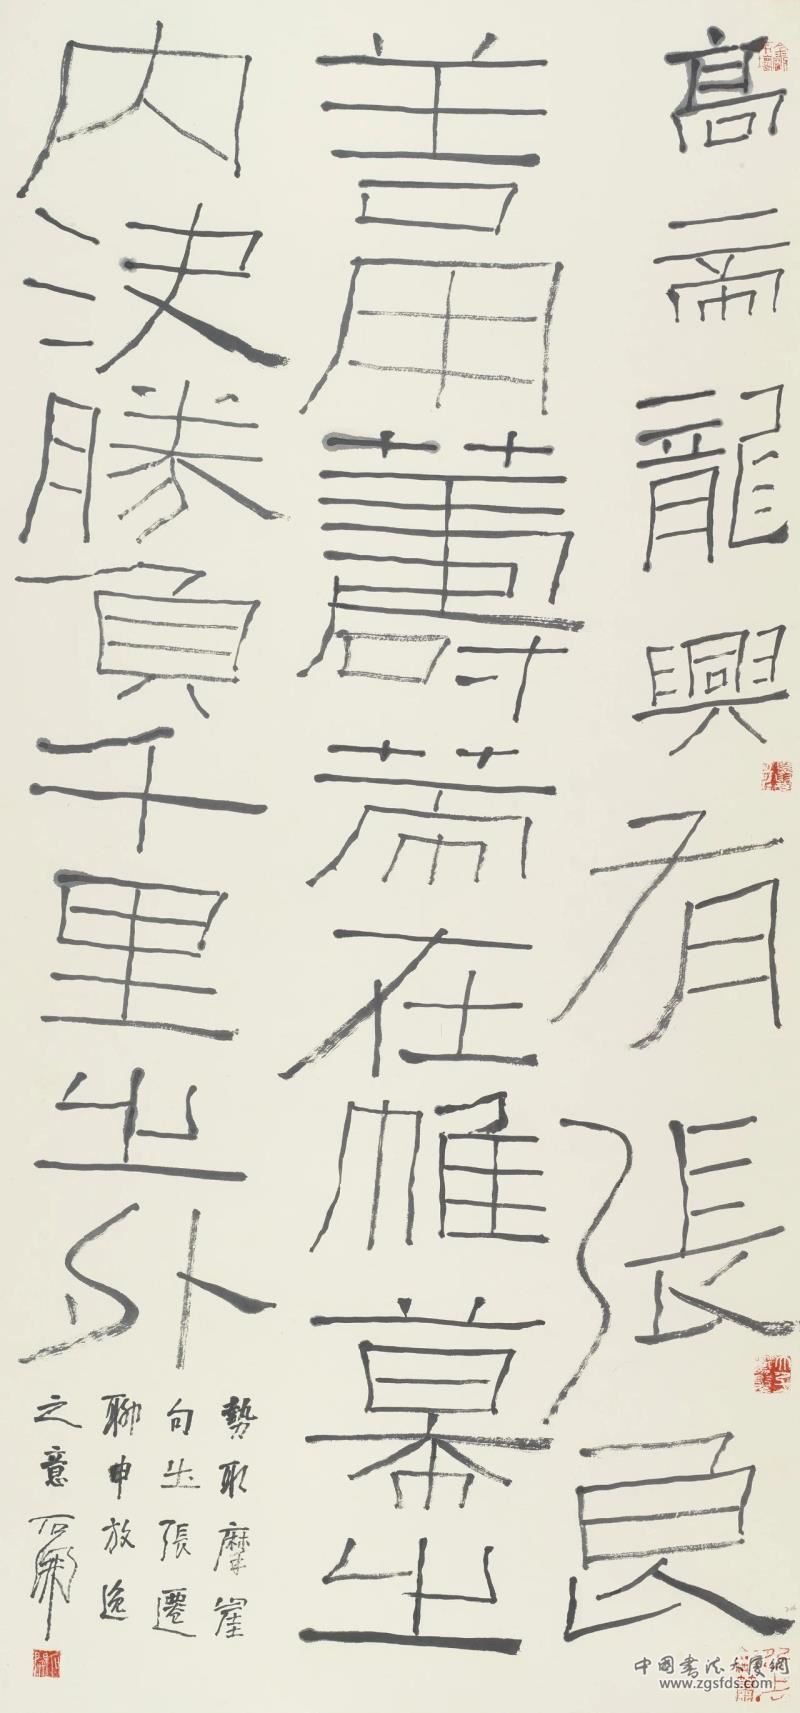 高帝龍興有張良
善用籌策在帷幕之
内決勝負千里之外
勢取摩崖
句出張遷
聊申放逸
之意
中國書法大廈網
www.zgsfds.com